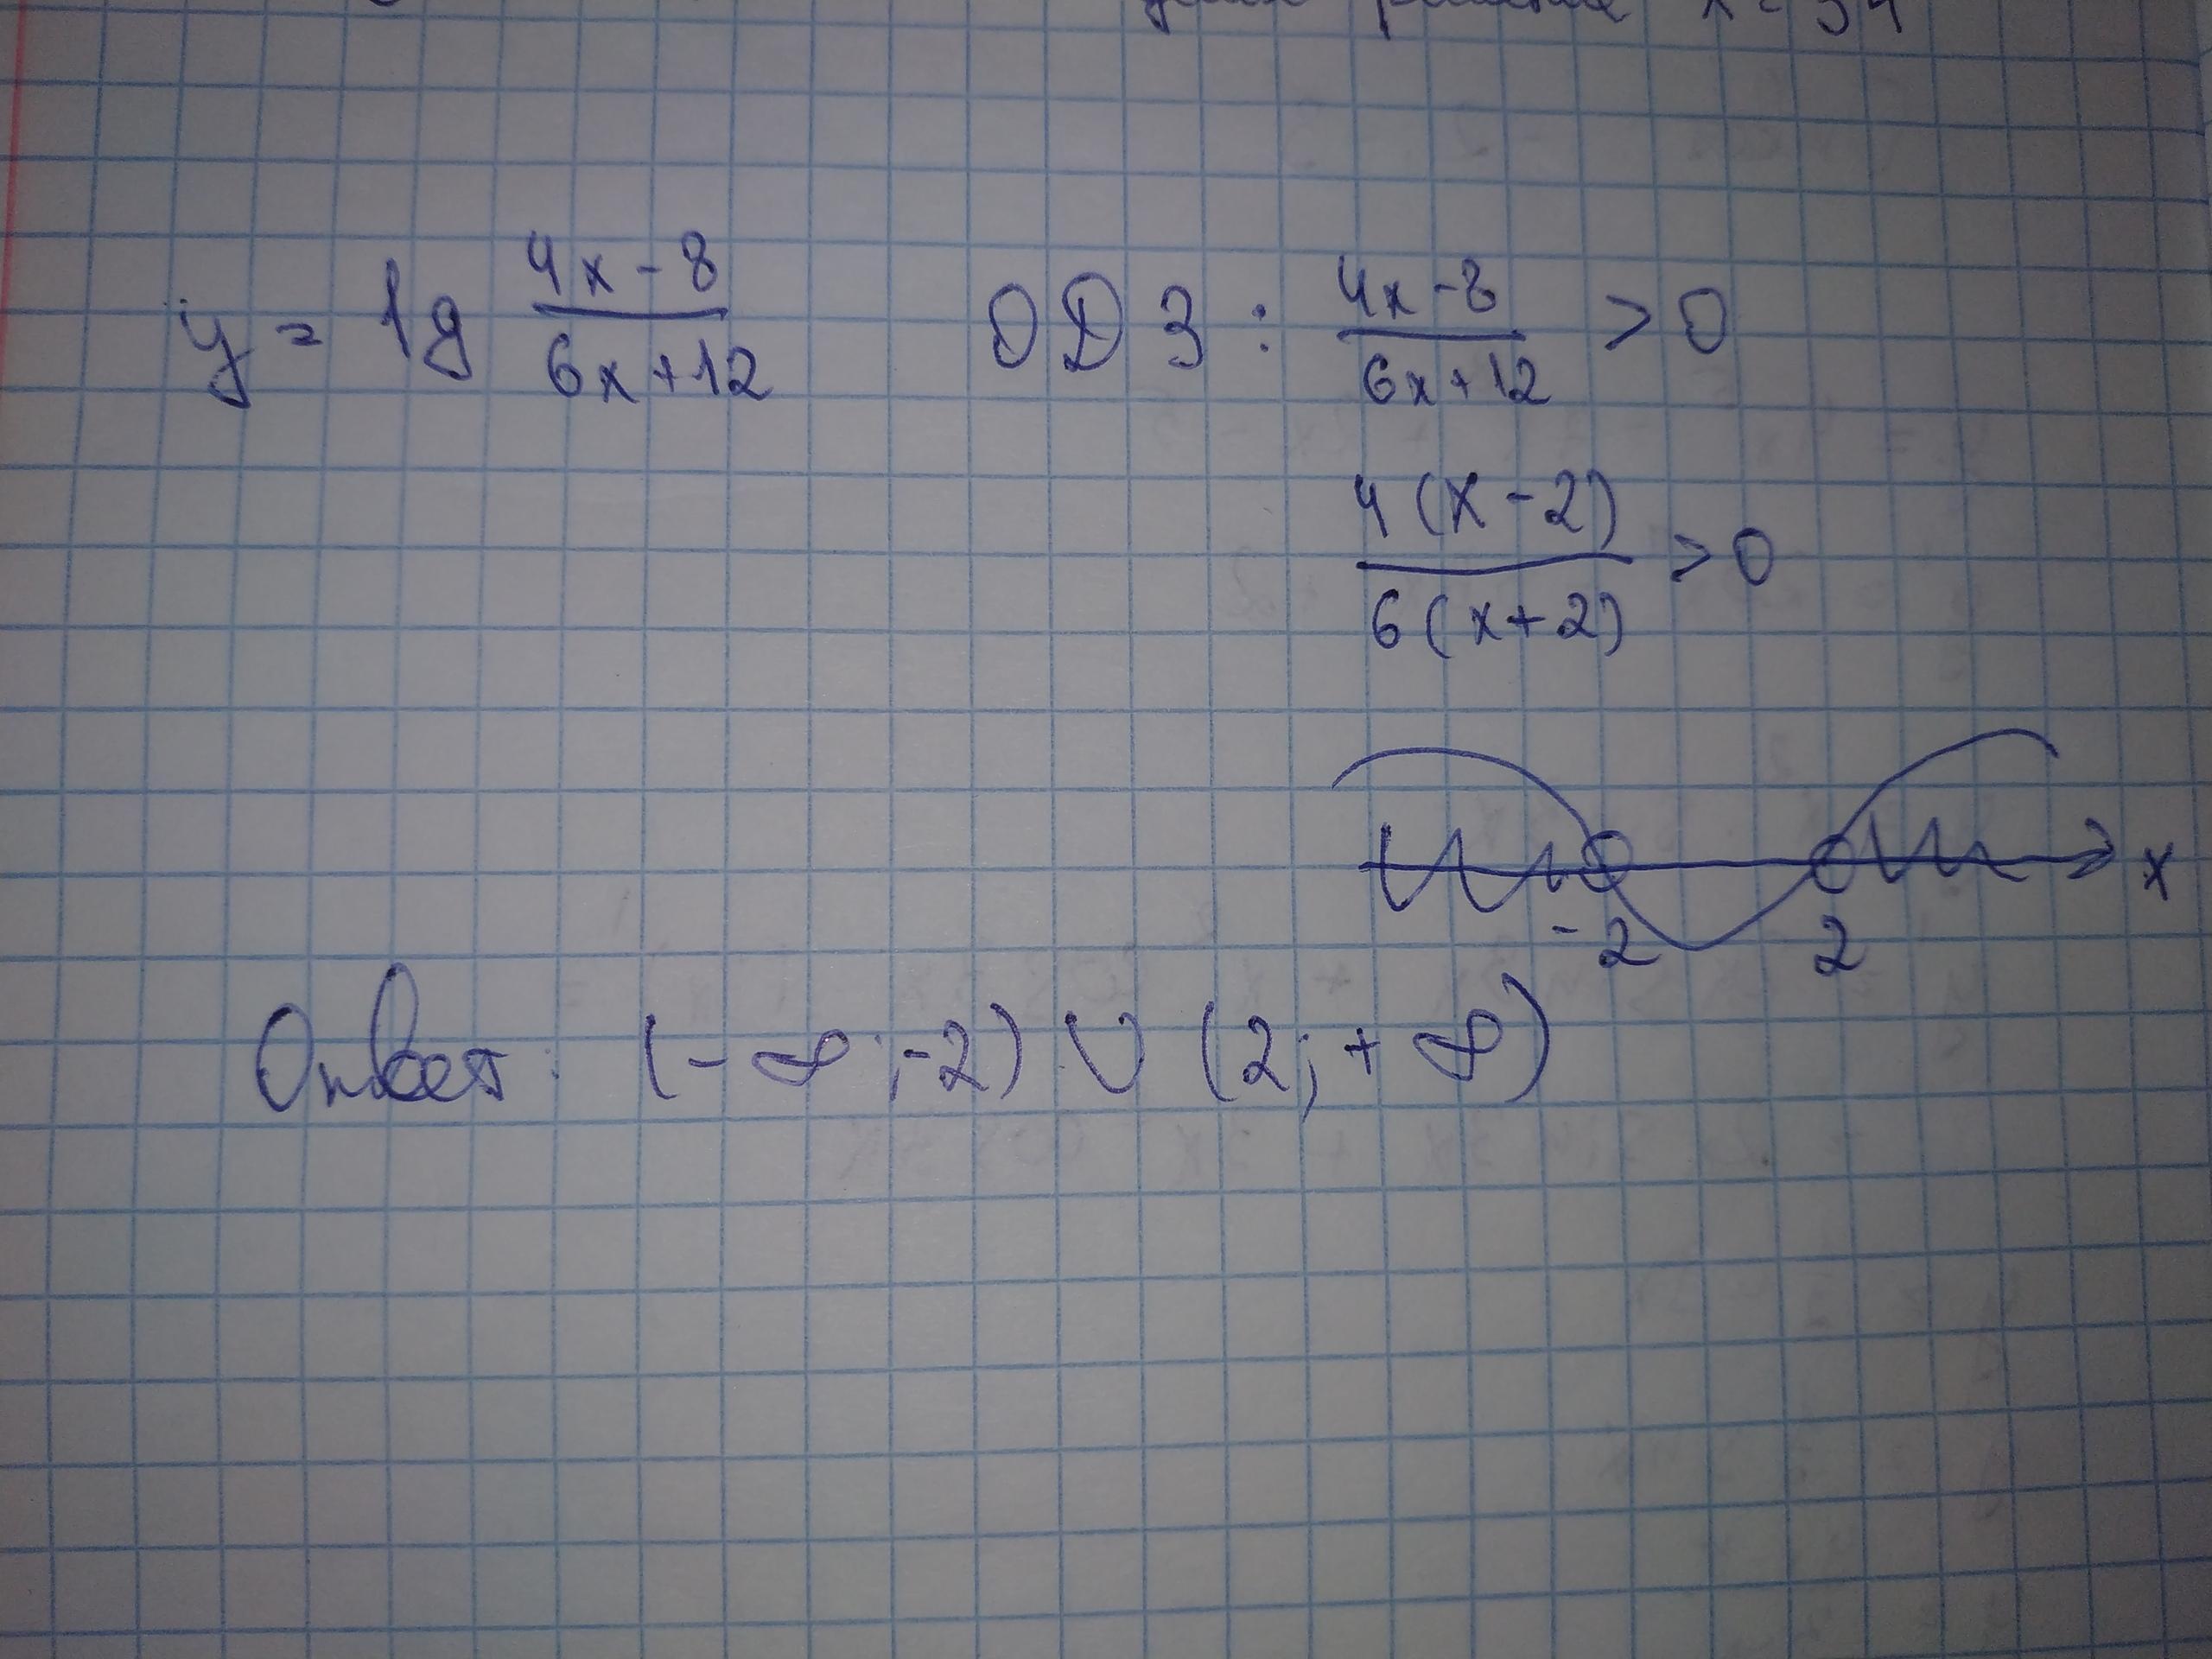 x = 34
y = lg (4x-8)/(6x+12) ОДЗ: (4x-8)/(6x+12) > 0
4(x-2)/6(x+2) > 0
-2 2 x
Ответ: (-∞;-2) ∪ (2;+∞)